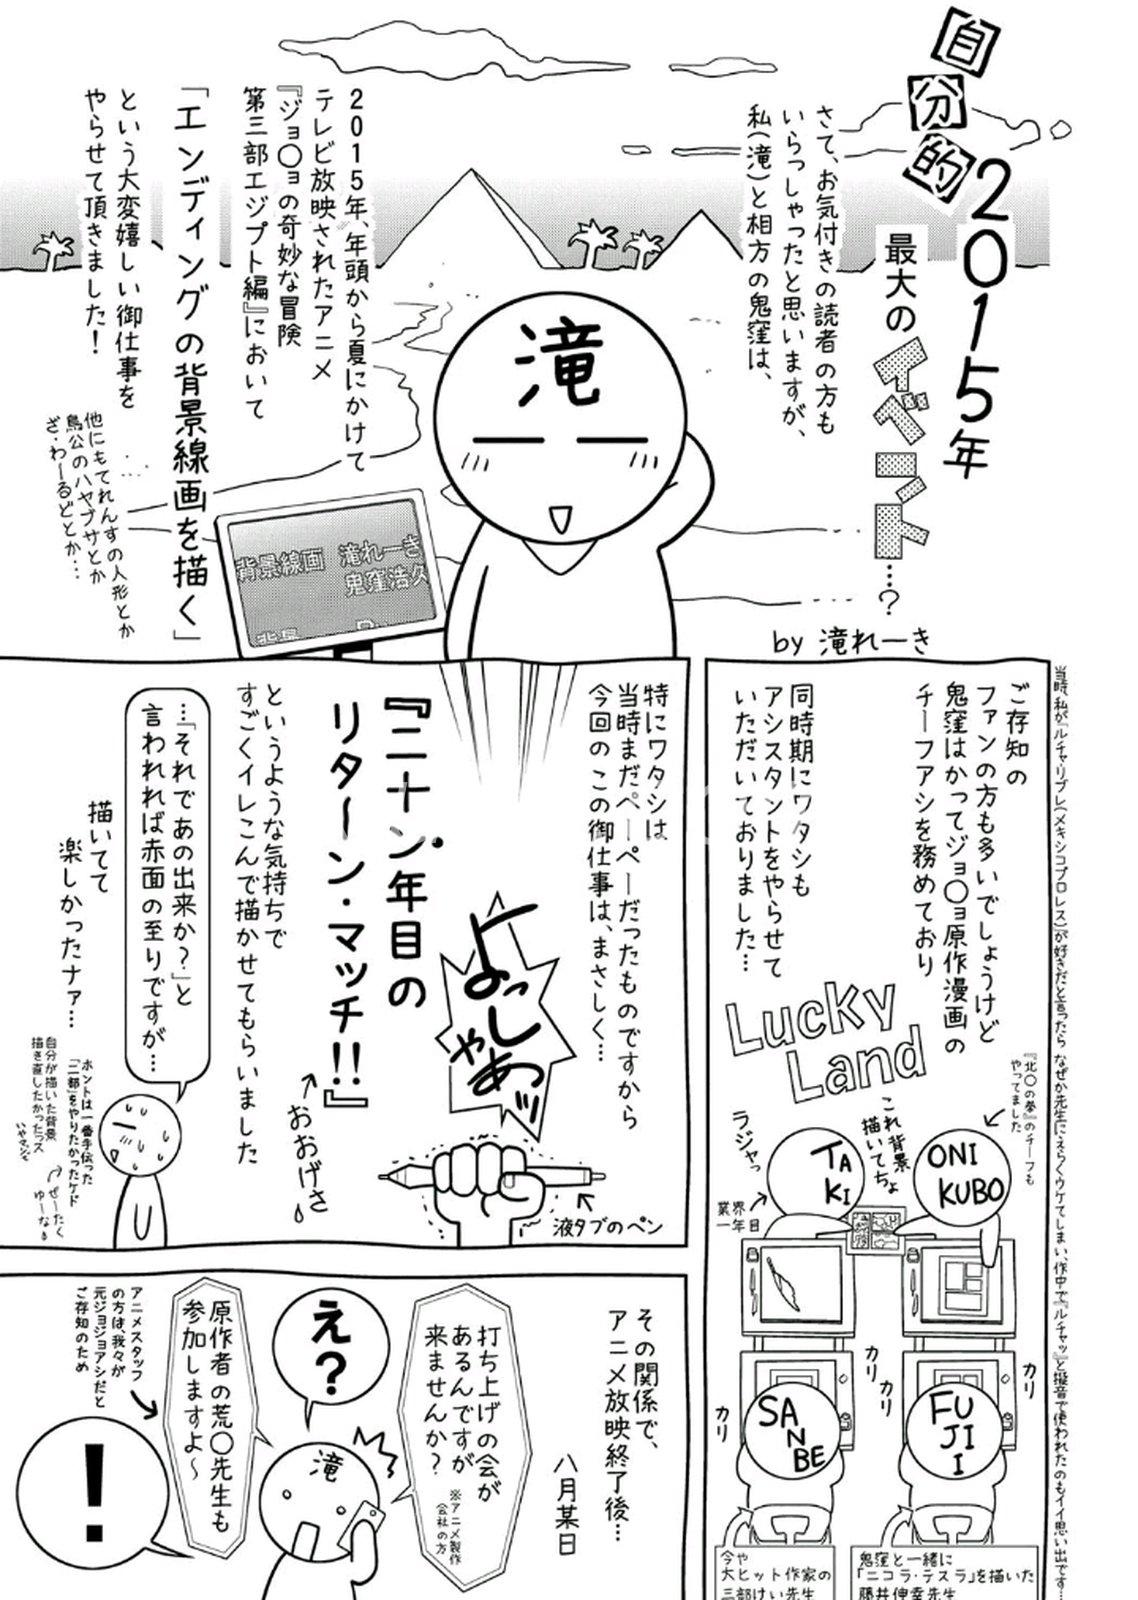 自分的
2015年
最大の
イベント…？
by 滝れーき
さて、お気付きの読者の方も
いらっしゃったと思いますが、
私(滝)と相方の鬼窪は、
滝
2015年、年頭から夏にかけて
テレビ放映されたアニメ
『ジョ〇ョの奇妙な冒険
第三部エジプト編』において
「エンディングの背景線画を描く」
という大変嬉しい御仕事を
やらせて頂きました！
他にもてれんすの人形とか
鳥公のハヤブサとか
ざ・わーるどとか…
背景線画 滝れーき
鬼窪浩久
背景
当時、私が『ルチャ・リブレ(メキシコプロレス)が好きだと言ったら なぜか先生にえらくウケてしまい、作中で『ルチャッ』と擬音で使われたのもイイ思い出です…
ご存知の
ファンの方も多いでしょうけど
鬼窪はかつてジョ〇ョ原作漫画の
チーフアシを務めており
同時期にワタシも
アシスタントをやらせて
いただいておりました…
Lucky
Land
『北〇の拳』のチーフも
やってました
これ背景
描いてちょ
ラジャっ
ONI
KUBO
TA
KI
業界
一年目
カリ
カリ
カリ
カリ
FU
JI
I
SA
N
BE
鬼窪と一緒に
「ニコラ・テスラ」を描いた
藤井伸幸先生
今や
大ヒット作家の
三部けい先生
特にワタシは
当時まだペーペーだったものですから
今回のこの御仕事は、まさしく…
『二十ン年目の
リターン・マッチ!!』
というような気持ちで
すごくイレこんで描かせてもらいました
おおげさ
よっしゃあッ
液タブのペン
…「それであの出来か？」と
言われれば赤面の至りですが…
描いてて
楽しかったナァ…
ホントは一番手伝った
「二部」をやりたかったケド
自分が描いた背景
描き直したかったッス
ぜーたく
ゆーな
その関係で、
アニメ放映終了後…
八月某日
打ち上げの会が
あるんですが
来ませんか？
※アニメ製作
会社の方
え？
滝
原作者の荒〇先生も
参加しますよ～
アニメスタッフ
の方は、我々が
元ジョジョアシだと
ご存知のため
！